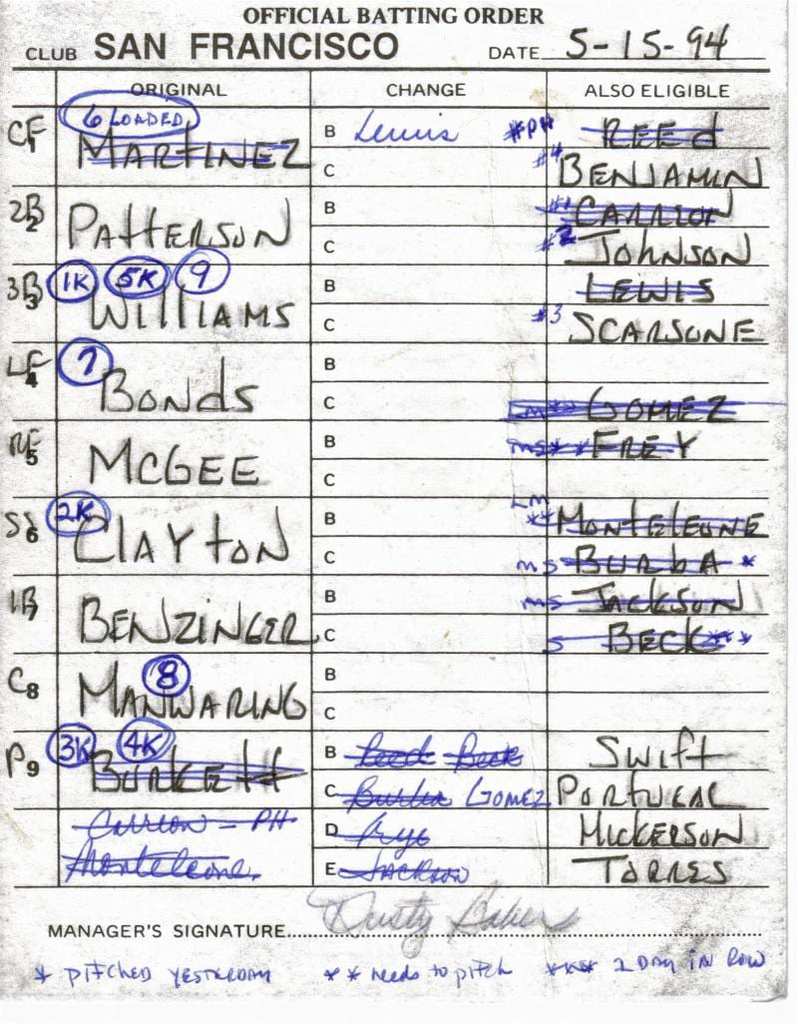 OFFICIAL BATTING ORDER
CLUB SAN FRANCISCO DATE 5-15-94
ORIGINAL CHANGE ALSO ELIGIBLE
6 LOADED
CF 1 MARTINEZ B Lewis #PH REEd
C #4 BENJAMIN
2B 2 PATTERSON B #1 CARRION
C #2 JOHNSON
1K 5K 9
3B 3 WILLIAMS B LEWIS
C #3 SCARSONE
7
LF 4 BONdS B
C LM ** GOMEZ
RF 5 MCGEE B MS ** FREY
C
2K
SS 6 CLAYtON B LM ** MONtELEONE
C MS BURbA *
1B 7 BENZINGER B MS JACKSON
C S BECK **
8
C 8 MANWARING B
C
3K 4K
P 9 BURKEtt B Reed Beck SWift
C Burba GOMEZ PORtUGAL
Carrion - PH D Frye HICKERSON
Monteleone. E JACKSON TORRES
MANAGER'S SIGNATURE Dusty Baker
* PITCHED YESTERDAY ** needs to pitch *** 2 DAY IN ROW